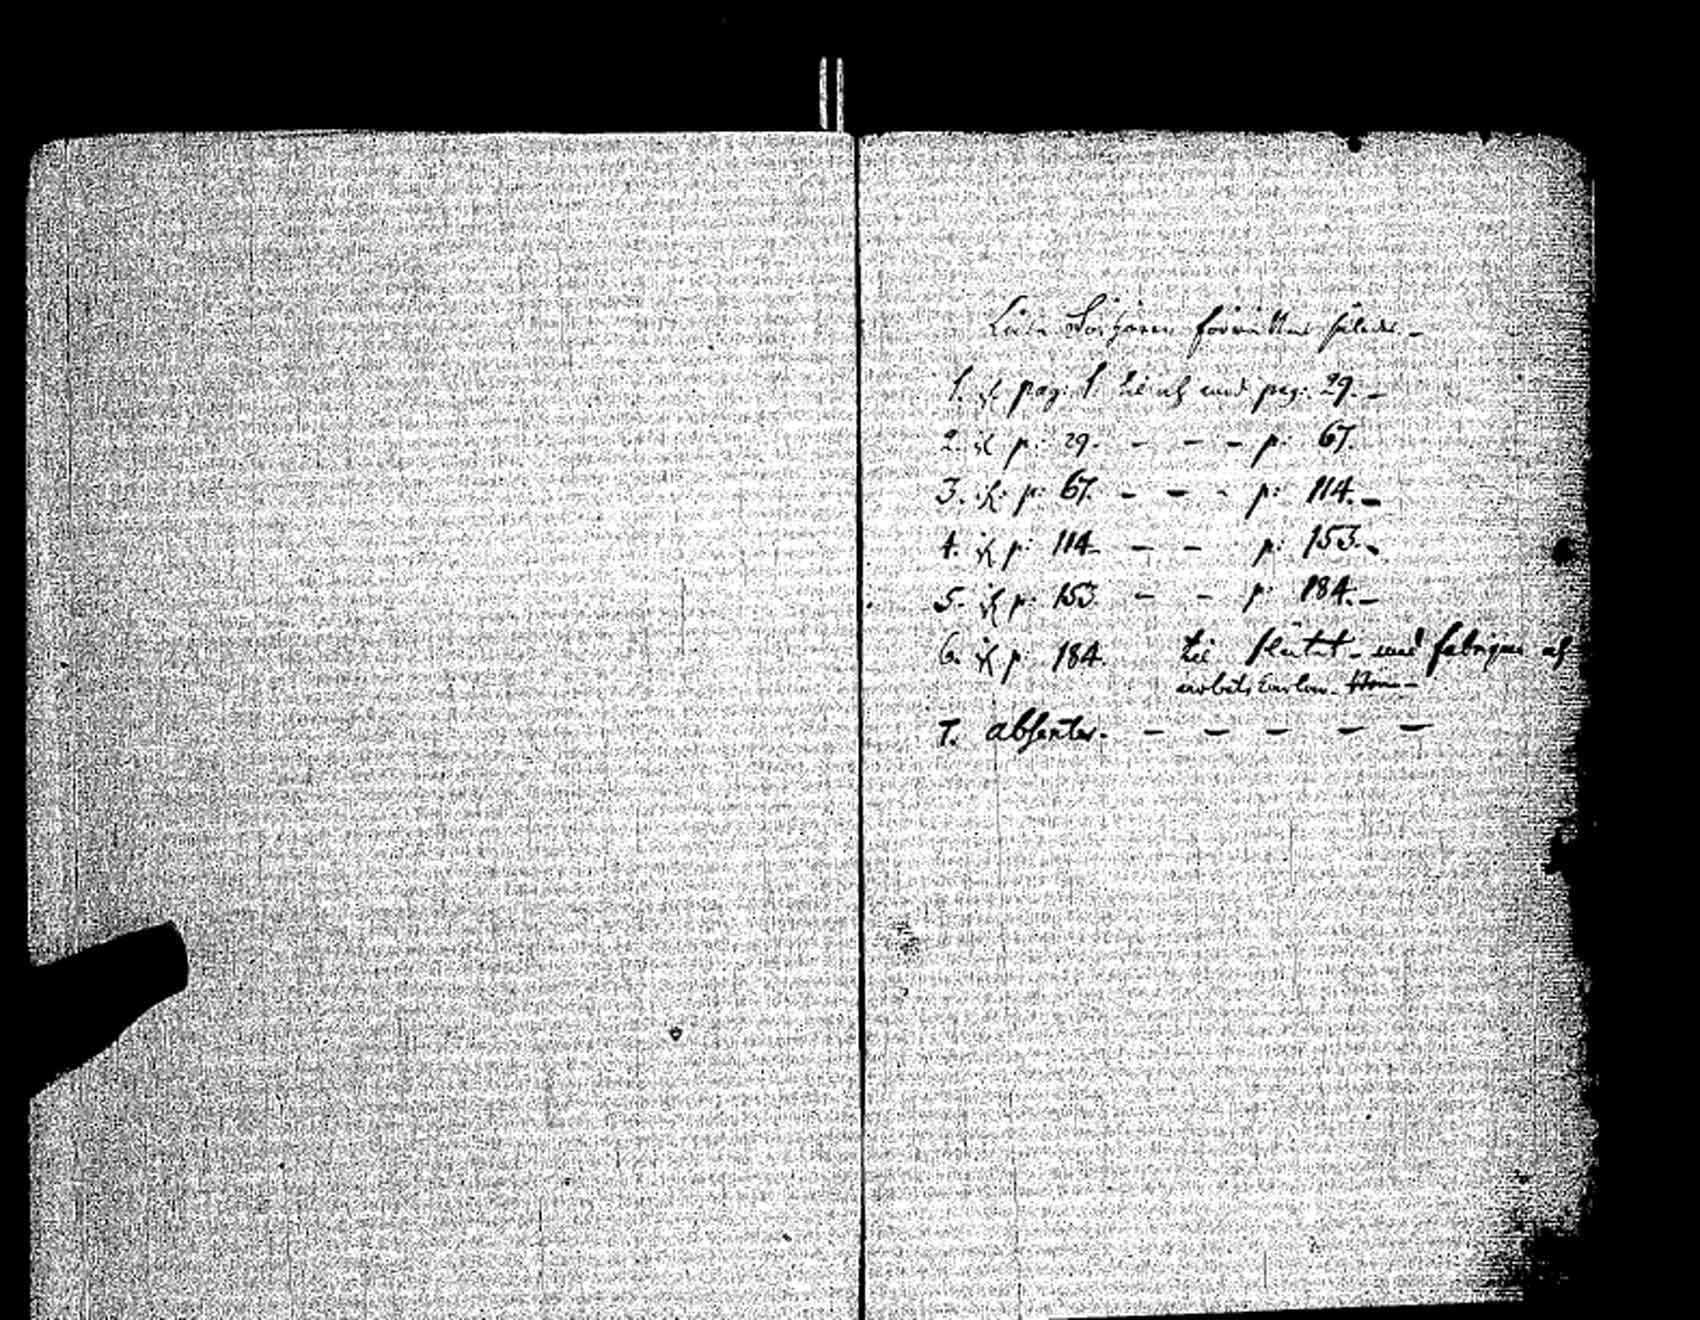 Läse Förhören förrättas således –
1. fr. pag: 1. till och med pag: 29. –
2. fr. p: 29. – – – p: 67.
3. fr. p: 67. – – – p: 114. –
4. fr. p: 114. – – p: 153. –
5. fr. p: 153. – – p: 184. –
6. fr. p: 184. till slutet – med fabriques och
arbets Carlar.
7. absenter. – – – – –